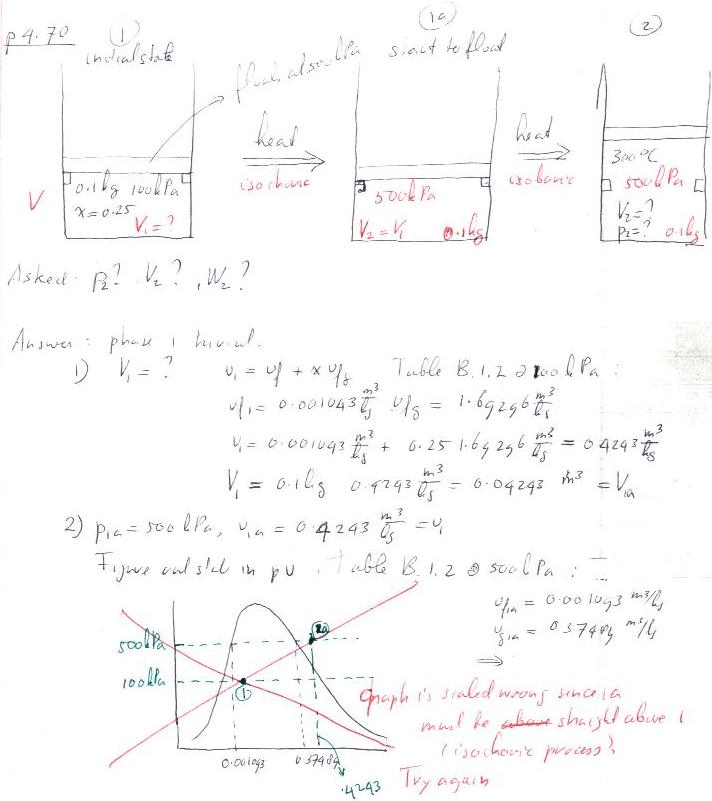 p 4.70
① ①a ②
initial state
floats at 500 kPa
start to float
heat
isochoric
heat
isobaric
0.1 kg 100 kPa
x = 0.25
V₁ = ?
V
500 kPa
V₂ = V₁ 0.1 kg
300 °C
500 kPa
V₂ = ?
p₂ = ? 0.1 kg
Asked: p₂? V₂?, W₂?
Answer: phase 1
1) V₁ = ? v₁ = vf + x vfg Table B.1.2 @ 100 kPa:
vf₁ = 0.001043 m³/kg vfg = 1.69296 m³/kg
v₁ = 0.001043 m³/kg + 0.25 1.69296 m³/kg = 0.4243 m³/kg
V₁ = 0.1 kg 0.4243 m³/kg = 0.04243 m³ = V₁a
2) p₁a = 500 kPa, v₁a = 0.4243 m³/kg = v₁
Figure out state in pv. Table B.1.2 @ 500 kPa:
vf₁a = 0.001093 m³/kg
vg₁a = 0.37489 m³/kg
⇒
500 kPa
100 kPa
①
0.001093
0.37489
.4243
Graph is scaled wrong since 1a
must be above straight above 1
(isochoric process)
Try again